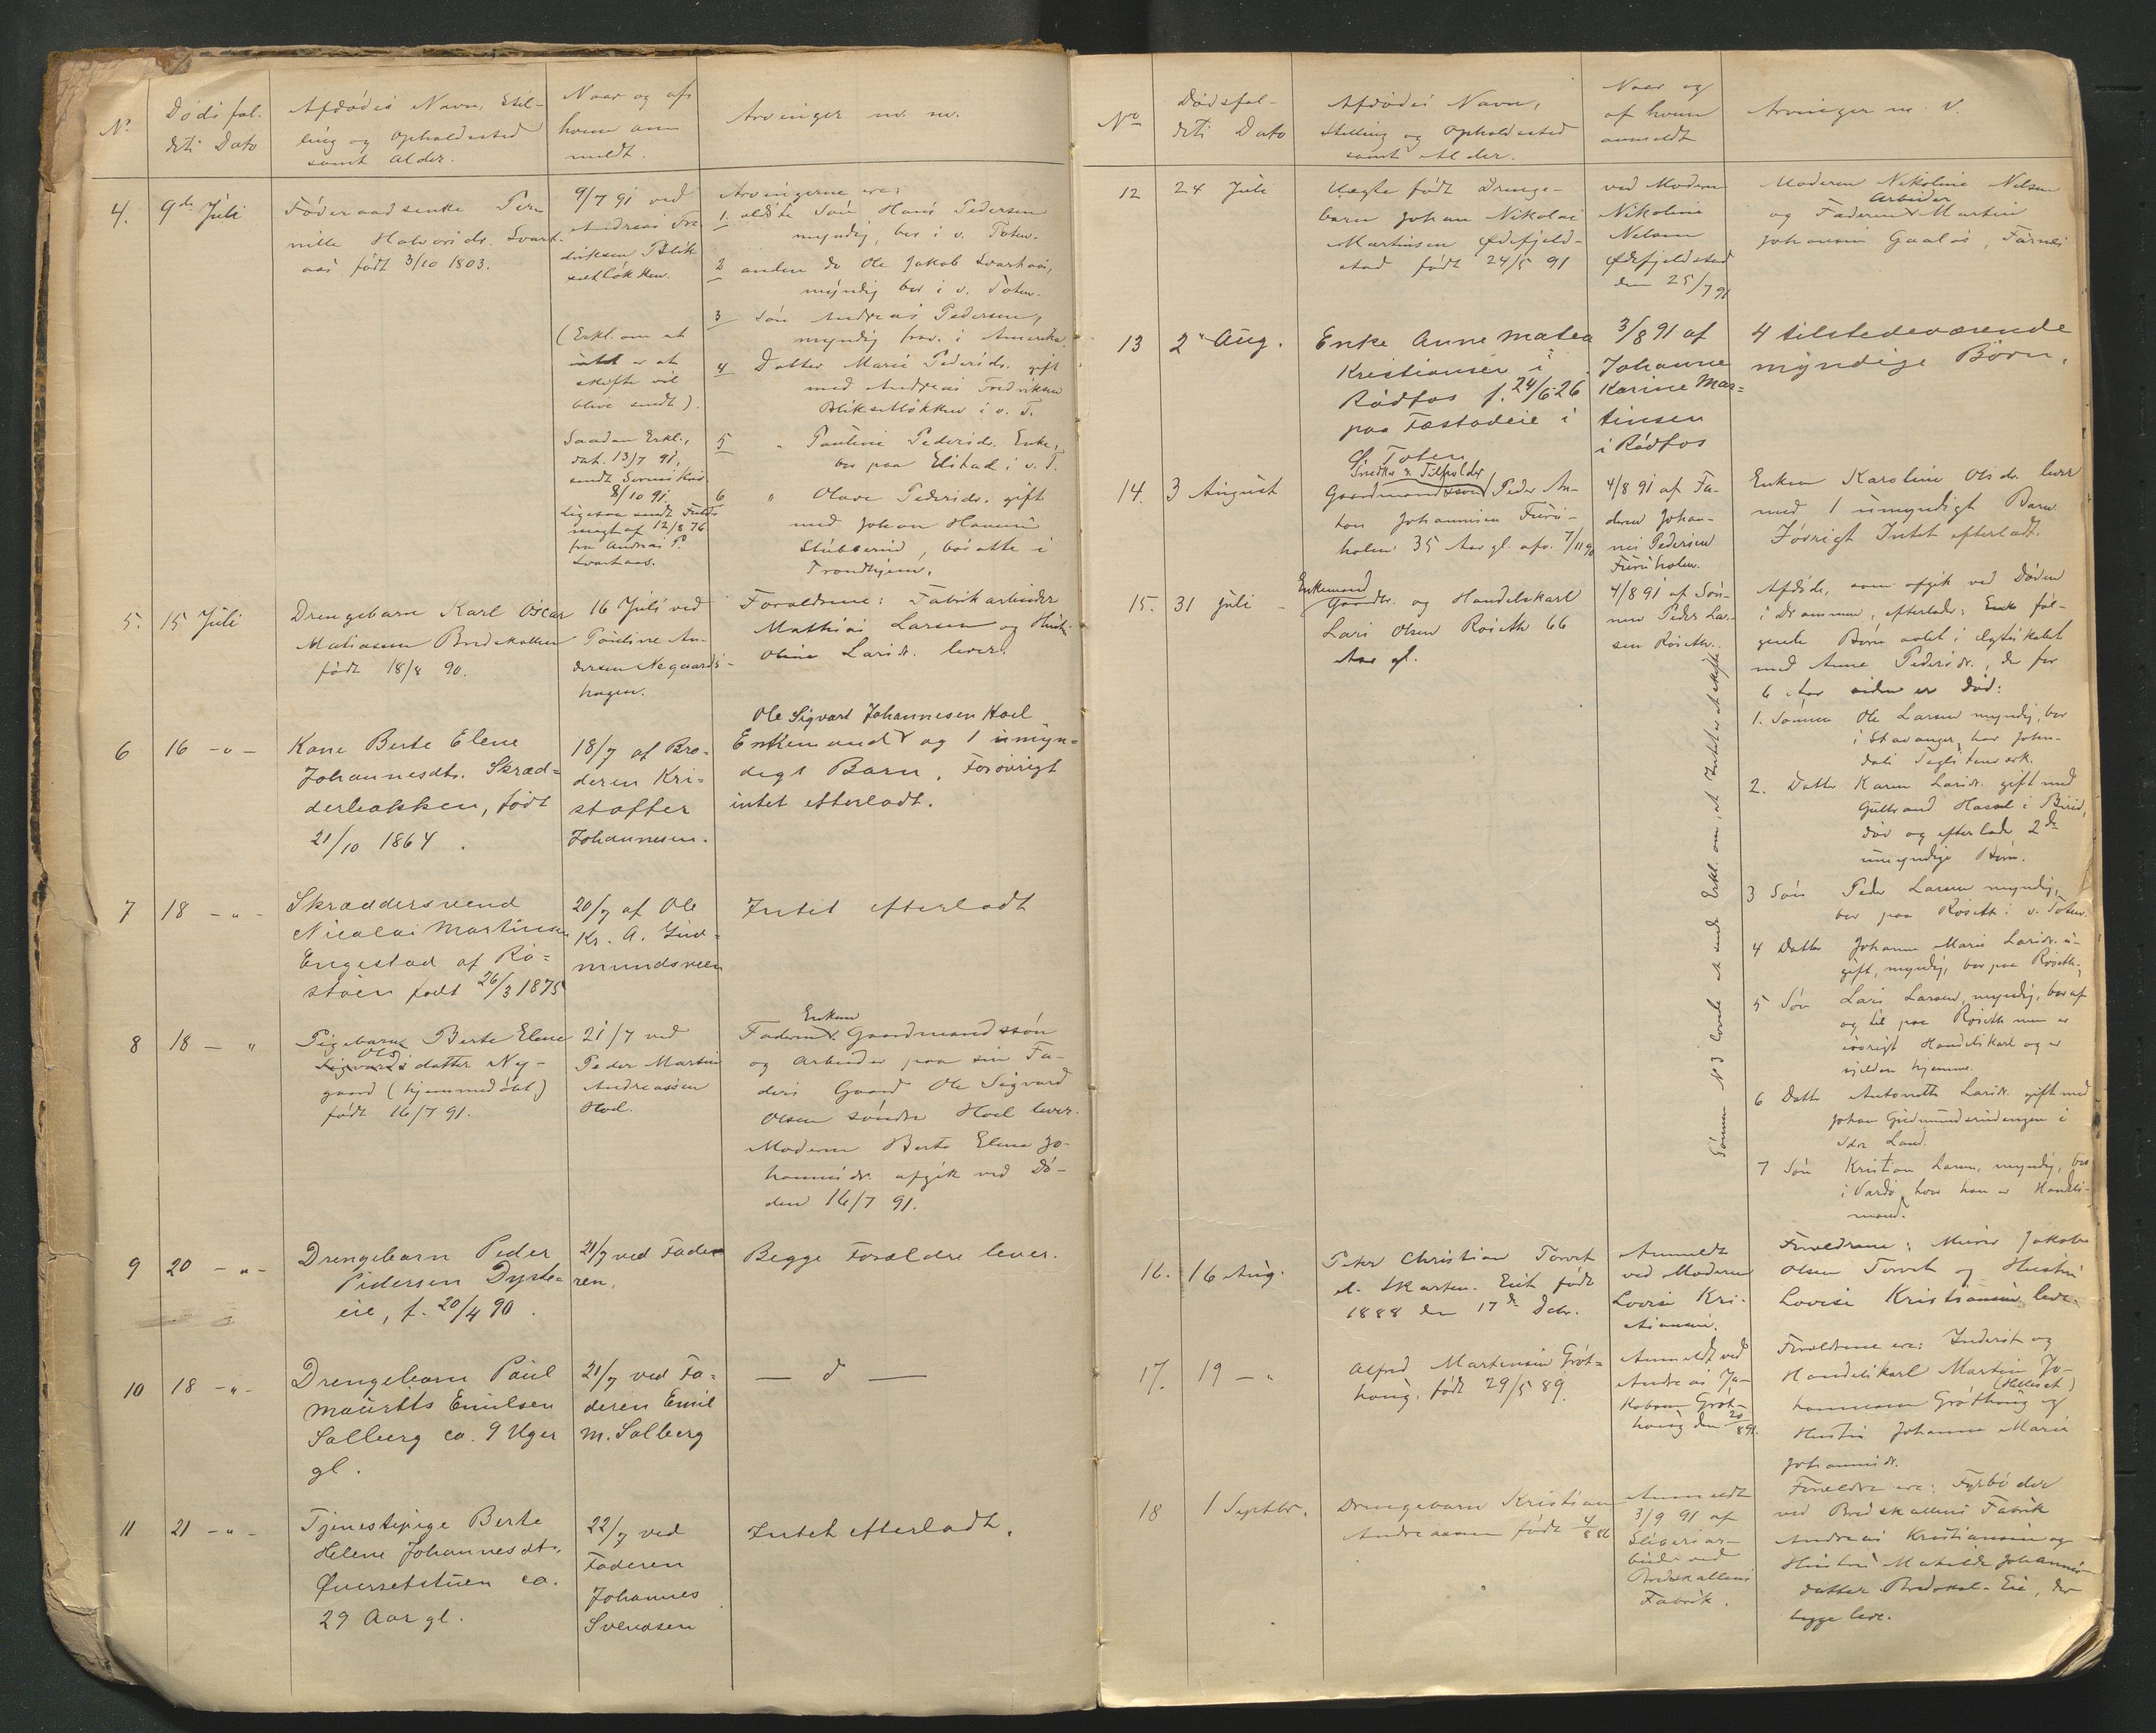 No.
Dødsfal-
dets Dato
Afdødes Navn, Stil-
ling og Opholdssted
samt Alder.
Naar og af
hvem an-
meldt.
Arvinger m. m.
4.
9de Juli
Føderaadsenke Per-
nille Halvorsdr. Svart-
aas født 3/10 1803.
9/7 91 ved
Andreas Fre-
driksen Blik-
setløkken.
(Erkl. om at
intet er at
skifte vil
blive sendt).
Saadan Erkl.,
dat. 13/7 91,
sendt
8/10 91.
Ligesaa sendt Fuld-
magt af 12/8 76
fra Andreas P.
Svartaas.
Arvingerne ere:
1. ældste Søn Hans Pedersen
myndig, bor i v. Toten.
2 anden do Ole Jakob Svartaas,
myndig bor i v. Toten.
3 Søn Andreas Pedersen,
myndig frav. i Amerika.
4 Datter Marie Pedersdr. gift
med Andreas Fredriksen
Bliksetløkken i v. T.
5 " Pauline Pedersdr. Enke,
bor paa Elstad i v. T.
6 " Olave Pedersdr. gift
med Johan Hansen
Stubberud, bosatte i
Trondhjem.
5.
15 Juli
Drengebarn Karl Oscar
Matiasen Bredskallen
født 18/8 90.
16 Juli ved
Pauline An-
dersen Nøgaards-
hagen.
Forældrene: Fabrikarbeider
Mathias Larsen og Hustru
Oline Larsdr. lever.
6
16 -"-
Kone Berte Elene
Johannesdtr. Skræd-
derbakken, født
21/10 1864.
18/7 af Bro-
deren Kri-
stoffer
Johannesen.
Ole Sigvart Johannesen Hoel
Enkemand og 1 umyn-
digt Barn. Forøvrigt
intet efterladt.
7
18 -"-
Skræddersvend
Nicolai Martinsen
Engestad af Ro-
støen født 26/3 1875
20/7 af Ole
Kr. A. Gud-
mundsveen
Intet efterladt
8
18 - "
Pigebarn Berte Elene
Ols
Sigvardsdatter Ny-
gaard (hjemmedøbt)
født 16/7 91.
21/7 ved
Peder Martin
Andreassen
Hoel.
Enkem
Faderen Gaardmandssøn
og Arbeider paa sin Fa-
ders Gaard Ole Sigvard
Olsen søndre Hoel lever.
Moderen Berte Elene Jo-
hannesdr. afgik ved Dø-
den 16/7 91.
9
20 -"-
Drengebarn Peder
Pedersen Dyste-
eie, f. 20/4 90.
21/7 ved Fade-
ren.
Begge Forældre lever.
10
18 -"-
Drengebarn Paul
Mauritts Emilsen
Solberg ca. 9 Uger
gl.
21/7 ved Fa-
deren Emil
M. Solberg
— d —
11
21 -"-
Tjenestepige Berte
Helene Johannesdtr.
Øversetstuen ca.
29 Aar gl.
22/7 ved
Faderen
Johannes
Svendsen
Intet efterladt.
No
Dødsfal-
dets Dato
Afdødes Navn,
Stilling og Opholdssted
samt Alder.
Naar og
af hvem
anmeldt
Arvinger m. V.
12
24 Juli
Uægte født Drenge-
barn Johan Nikolai
Martinsen Ødefjeld-
stad født 24/5 91
ved Modern
Nikoline
Nelsen
Ødefjeldstad
den 25/7 91
Moderen Nikoline Nelsen
Arbeider
og Faderen Martin
Johansen Gaalaas, Furnes
13
2 Aug.
Enke Anne Matea
Kristiansen i
Rødfos f. 24/6 26
paa Fæstadeie i
Ø Toten
3/8 91 af
Johanne
Karine Mar-
tinsen
i Rødfos
4 tilstedeværende
myndige Børn.
14.
3 August
Snedker &
Gaardmandssøn Peder An-
ton Johannesen Furu-
holen 35 Aar gl. 7/11 90
4/8 91 af Fa-
deren Johan-
nes Pedersen
Furuholen.
Enken Karoline Olsdr. lever
med 1 umyndigt Barn
Iøvrigt Intet efterladt.
15.
31 Juli
Enkemand
Gaardbr. og Handelskarl
Lars Olsen Røiseth 66
Aar gl.
4/8 91 af Søn-
nen Peder Lar-
sen Røiseth.
Sønnen No 3 lovede at sende Erkl. om, at Intet er at skifte
Afdøde, som afgik ved Døden
i Drammen, efterlader: føl-
gende Børn avlet i Ægteskabet
med Anne Pedersdr., der for
6 Aar siden er død:
1. Sønnen Ole Larsen myndig, bor
i Stavanger, har John-
dals Teglstensværk.
2. Datter Karen Larsdr. gift med
Gulbrand Hassel i Birid,
død og efterlader 2de
umyndige Børn.
3 Søn Peder Larsen myndig,
bor paa Røiseth i v. Toten.
4 Datter Johanne Marie Larsdr. u-
gift, myndig, bor paa Røiseth,
5 Søn Lars Larsen, myndig, bor af
og til paa Røiseth men er
iøvrigt Handelskarl og er
sjelden hjemme.
6 Datter Antonette Larsdr. gift med
Johan Gudmundsrudengen i
Sdre Land.
7 Søn Kristian Larsen, myndig, bor
i Vardø, hvor han er Handels-
mand.
16.
16 Aug.
Peter Christian Torvet
el. Skarten. Eit født
1888 den 17de Debr.
Anmeldt
ved Moderen
Lovise Kri-
stiansen.
Forældrene: Murer Jakob
Olsen Torvet og Hustru
Lovise Kristiansen lever.
17.
19 - "
Alfred Martinsen Grøt-
haug. født 29/5 89.
Anmeldt ved
Andreas Ja-
kobsen Grøt-
haug den 20/8 91.
Forældrene ere: Inderst og
Handelskarl Martin Jo-
hannesen Grøthaug og
Hustru Johanne Marie
Johannesdr.
18
1 Septbr.
Drengebarn Kristian
Andreasen født 4/8 86
Anmeldt
3/9 91 af
Sliberiar-
beider ved
Bredskallens
Fabrik.
Forældre ere: Fyrbøder
ved Bredskallens Fabrik
Andreas Kristiansen og
Hustru Matilde Johannes-
datter Bredskal-Eie, der
begge lever.